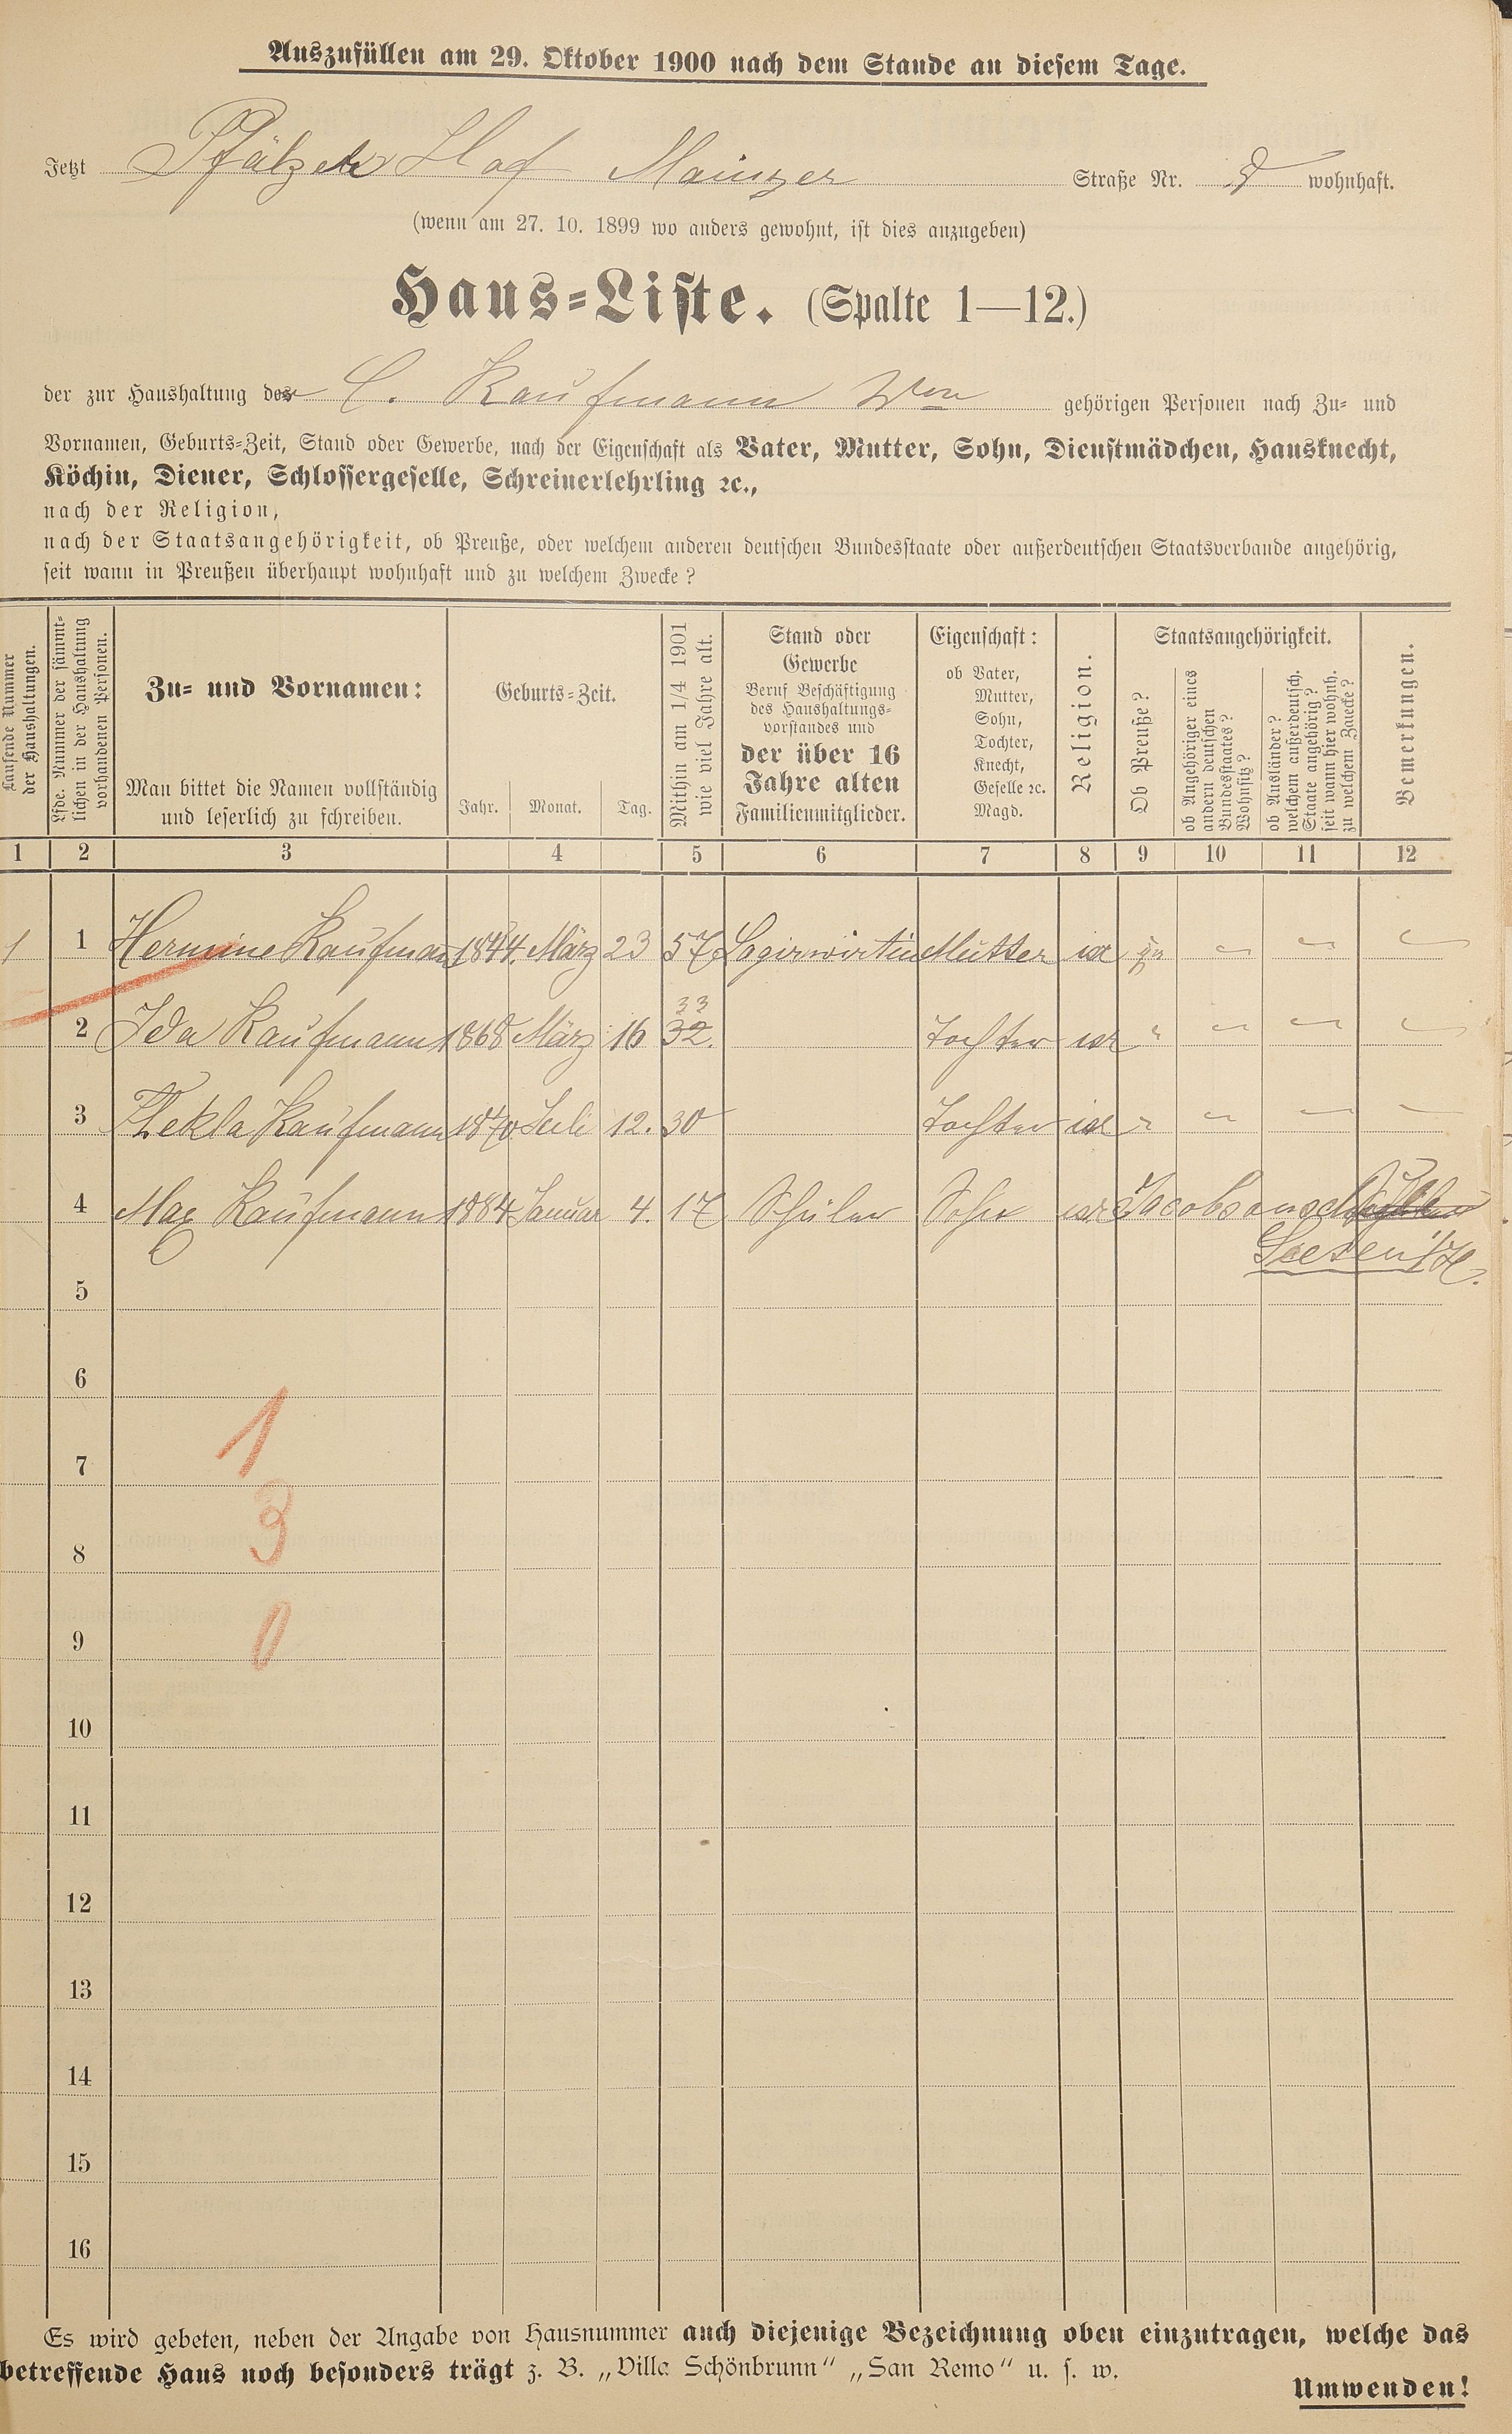 Auszufüllen am 29. Oktober 1900 nach dem Stande an diesem Tage.
Jetzt Pfälzer Hof Mainzer Straße Nr. 8 wohnhaft.
(wenn am 27. 10. 1899 wo anders gewohnt, ist dies anzugeben)
Haus-Liste. (Spalte 1—12.)
der zur Haushaltung der C. Kaufmann Wwe gehörigen Personen nach Zu- und
Vornamen, Geburts-Zeit, Stand oder Gewerbe, nach der Eigenschaft als Vater, Mutter, Sohn, Dienstmädchen, Hausknecht,
Köchin, Diener, Schlossergeselle, Schreinerlehrling ꝛc.,
nach der Religion,
nach der Staatsangehörigkeit, ob Preuße, oder welchem anderen deutschen Bundesstaate oder außerdeutschen Staatsverbande angehörig,
seit wann in Preußen überhaupt wohnhaft und zu welchem Zwecke?
Laufende Nummer
der Haushaltungen.
Lfde. Nummer der sämmt-
lichen in der Haushaltung
vorhandenen Personen.
Zu- und Vornamen:
Man bittet die Namen vollständig
und leserlich zu schreiben.
Geburts-Zeit.
Jahr. Monat. Tag.
Mithin am 1/4 1901
wie viel Jahre alt.
Stand oder
Gewerbe
Beruf Beschäftigung
des Haushaltungs-
vorstandes und
der über 16
Jahre alten
Familienmitglieder.
Eigenschaft:
ob Vater,
Mutter,
Sohn,
Tochter,
Knecht,
Geselle ꝛc.
Magd.
Religion.
Staatsangehörigkeit.
Ob Preuße?
ob Angehöriger eines
andern deutschen
Bundesstaates?
Wohnsitz?
ob Ausländer?
welchem außerdeutsch.
Staate angehörig?
seit wann hier wohnh.
zu welchem Zwecke?
Bemerkungen.
1 2 3 4 5 6 7 8 9 10 11 12
1 1 Hermine Kaufmann 1844. März 23 57 Logirwirtin Mutter isr ja – – –
33
2 Ida Kaufmann 1868 März 16 32. Tochter isr " – – –
3 Thekla Kaufmann 1870 Juli 12. 30 Tochter isr " – – –
4 Max Kaufmann 1884 Januar 4. 17 Schüler Sohn isr Jacobsonsch
Seesen a/H.
5
6
1
7
3
8
0
9
10
11
12
13
14
15
16
Es wird gebeten, neben der Angabe von Hausnummer auch diejenige Bezeichnung oben einzutragen, welche das
betreffende Haus noch besonders trägt z. B. „Villa Schönbrunn“ „San Remo“ u. s. w.
Umwenden!